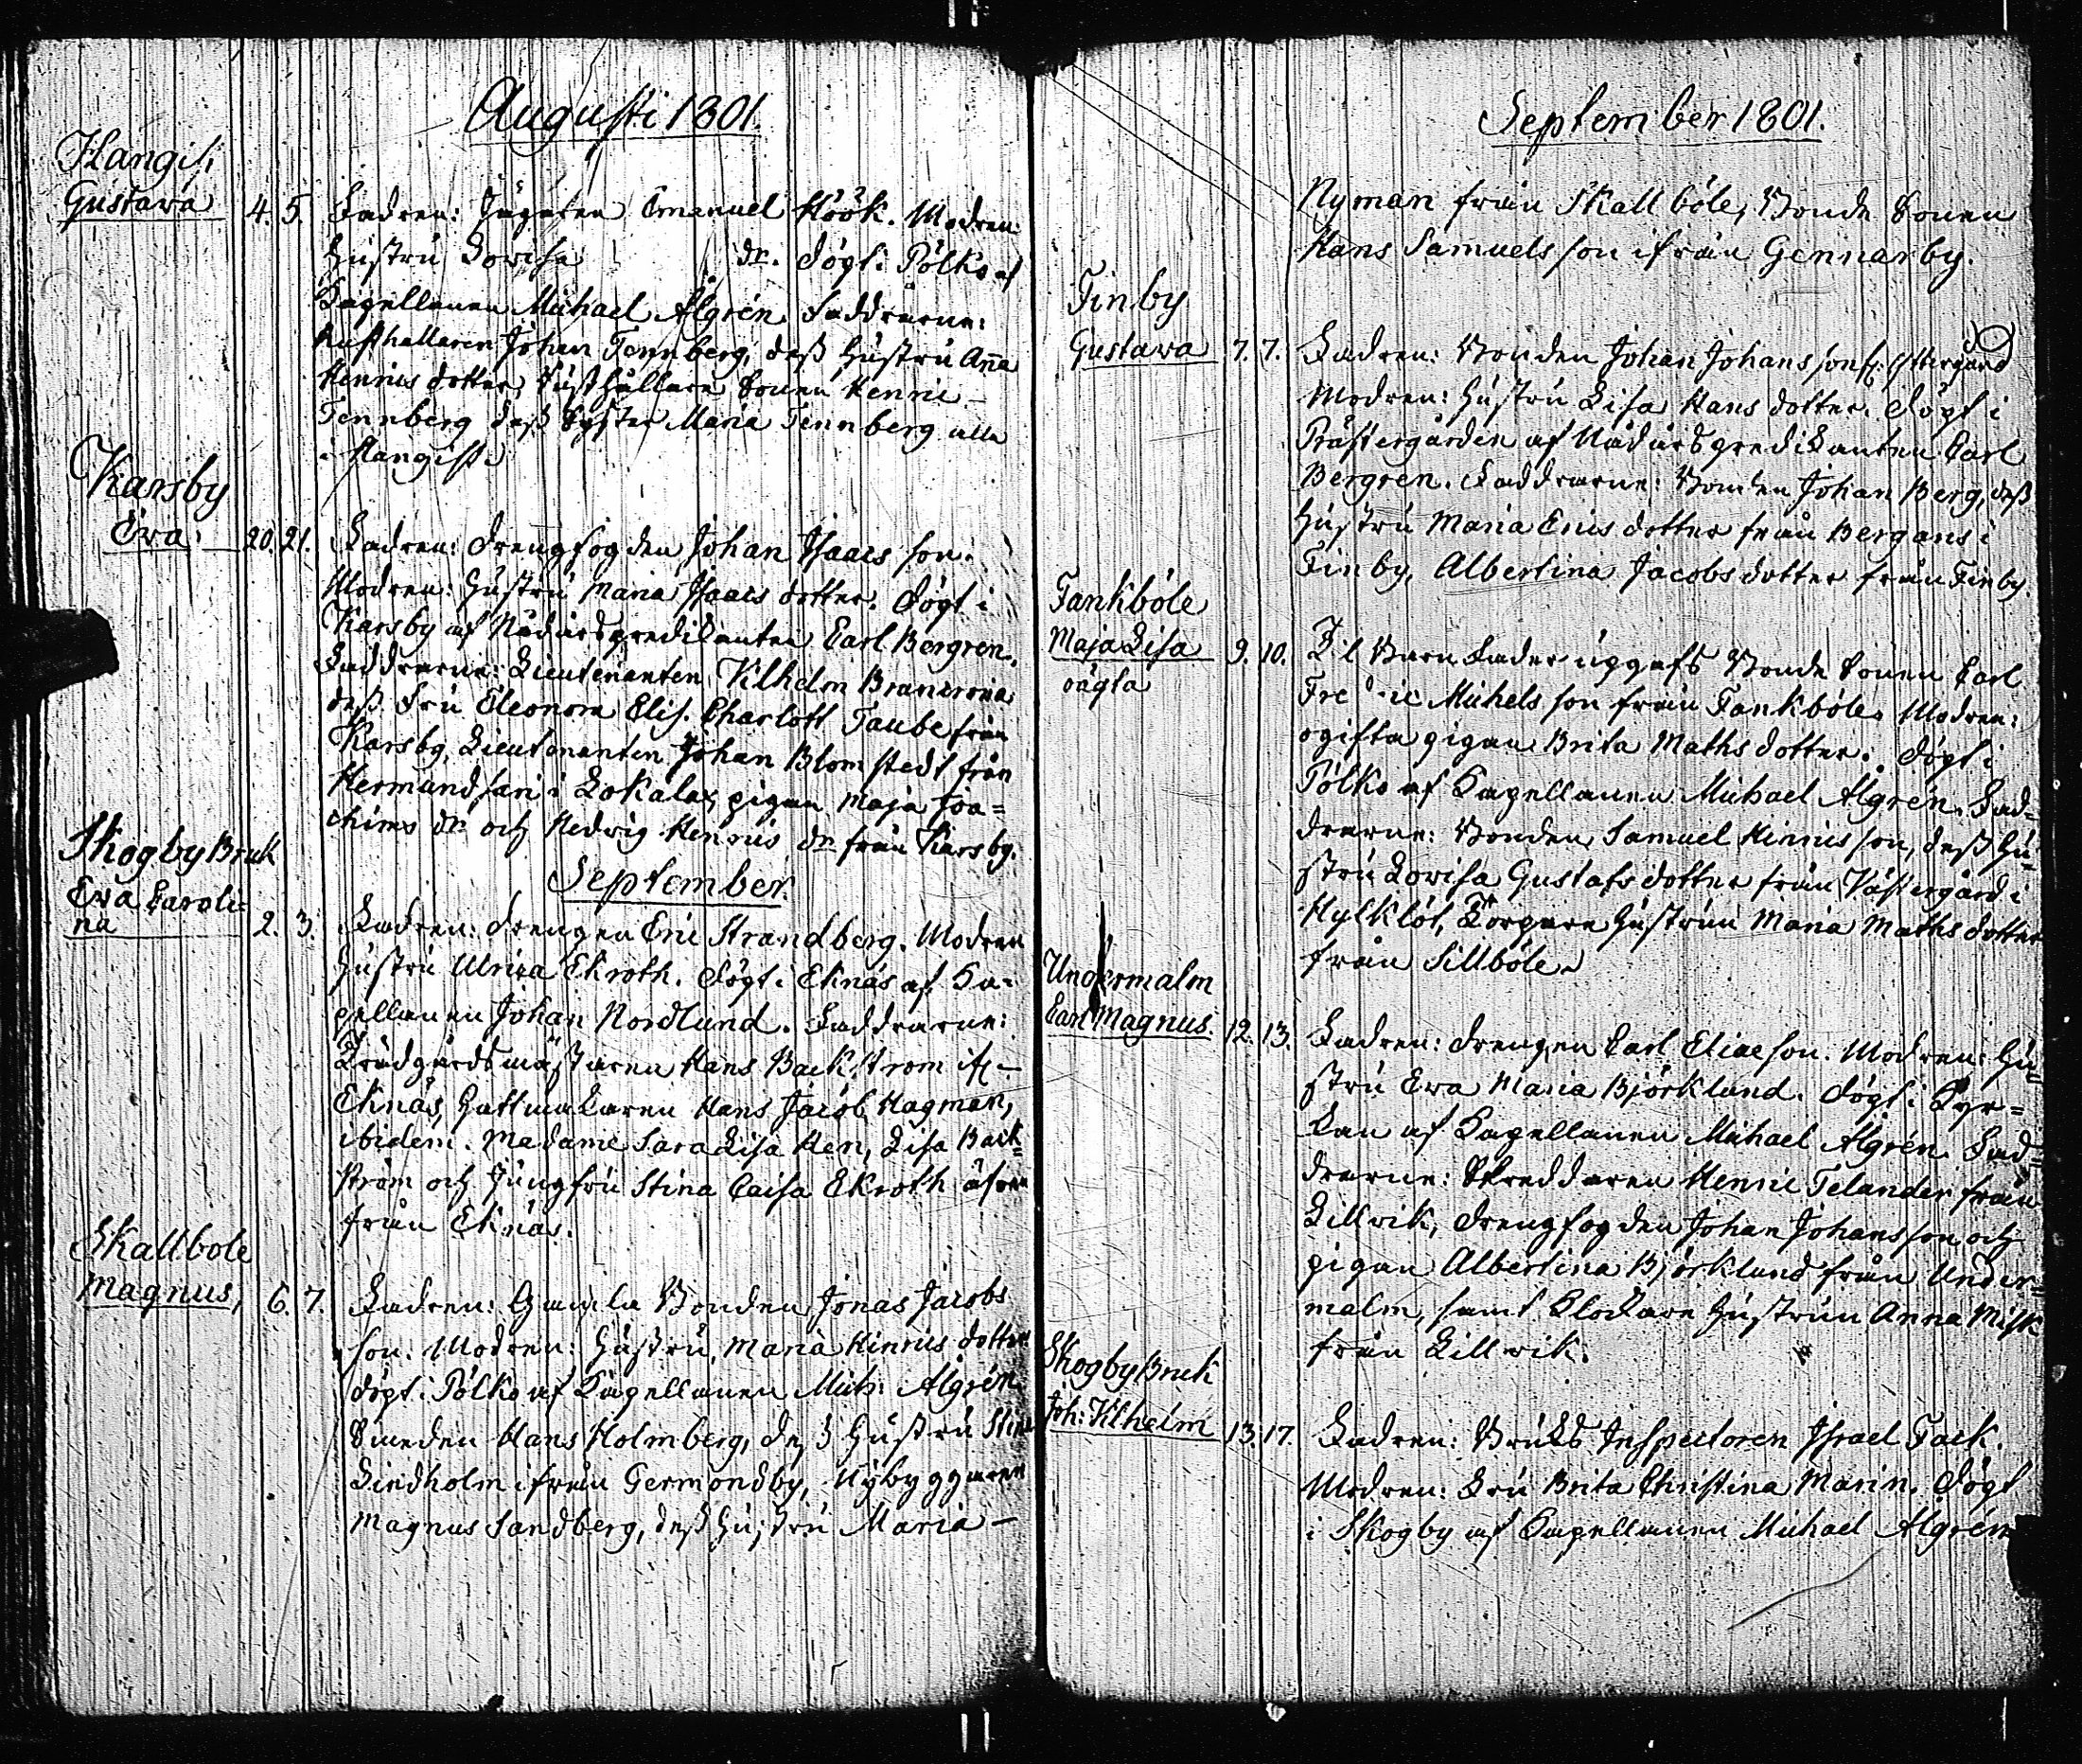 Augusti 1801.
Hangis,
Gustava 4. 5. Fadren: Jägaren Emanuel Höök. Modren:
Hustru Lovisa dr. döpt i Pölkö af
Capellanen Michael Algrén. Faddrarne:
Rusthållaren Johan Tennberg, dess Hustru Anna
Henrics dotter, Rusthållare Sonen Henric
Tennberg dess Syster Maria Tennberg alla
i Hangist.
Karsby
Eva. 20. 21. Fadren: drengfogden Johan Isaacs son.
Modren: Hustru Maria Isaacs dotter. döpt i
Karsby af Nådårspredikanten Carl Bergren.
Faddrarne: Lieutenanten Vilhelm
dess Fru Eleonora Elis. Charlott Taube från
Karsby, Lieutenanten Johan Blomstedt från
Hermandsari i Lokalax, pigan Maja Joa=
chims dr och Hedvig Henrics dr från Karsby.
September
Skogby Bruk
Eva Caroli=
na 2. 3. Fadren: drengen Eric Strandberg. Modren
Hustru Ulrica Ekroth. döpt i Eknäs af Ca=
pellanen Johan Nordlund. Faddrarne:
Trädgårdsmästaren Hans Backstrom if:
Eknäs, Hattmakaren Hans Jacob Hagman,
ibidem. Madame Sara Lisa Hen, Lisa Back=
ström och Jungfru Stina Caisa Ekroth äfven
från Eknäs.
Skallbole
Magnus, 6. 7. Fadren: Gamla Bonden Jonas Jacobs
son. Modren: Hustru Maria Hinrics dotter
döpt i Pölkö af Capellanen Mich: Algrén.
Smeden Hans Holmberg, dess Hustru Stina
Lindholm ifrån Germondby, Nybyggaren
Magnus Sandberg, dess Hustru Maria
September 1801.
Nyman från Skallböle, Bonde Sonen
Hans Samuels son ifrån Gennarby.
Finby
Gustava 7. 7. Fadren: Bonden Johan Johans son fr: Östergård
Modren: Hustru Lisa Hans dotter. döpt i
Prästergården af Nådårspredikanten Carl
Bergren. Faddrarne: Bonden Johan Berg, dess
Hustru Maria Erics dotter från Bergans i
Finby, Albertina Jacobs dotter från Finby.
Fankböle
Maja Lisa 9. 10. Til Barn Fader uppgafs Bonde Sonen Carl
oägta Fredric Michels son från Fankböle. Modren:
ogifta pigan Brita Maths dotter. döpt i
Pölkö af Capellanen Michael Algrén. Fad=
drarne: Bonden Samuel Hinrics son, dess Hu=
stru Lovisa Gustafs dotter från Västergård i
Torpare Hustrun Maria Maths dotter
från Sillböle.
Undermalm
Carl Magnus. 12. 13. Fadren: drengen Carl Eliae son. Modren: Hu=
stru Eva Maria Björklund. döpt i Kyr=
kan af Capellanen Michael Algrén. Fad=
drarne: Skreddaren Henric Telander från
Lillvik, drengfogden Johan Johans son och
pigan Albertina Björklund från Under=
malm, samt Klockare Hustrun Anna Misk
från Lillvik.
Skogby Bruk
Joh: Vilhelm 13. 17. Fadren: Bruks Inspectoren Israel Fack.
Modren: Fru Brita Christina Marin. döpt
i Skogby af Capellanen Michael Algrén